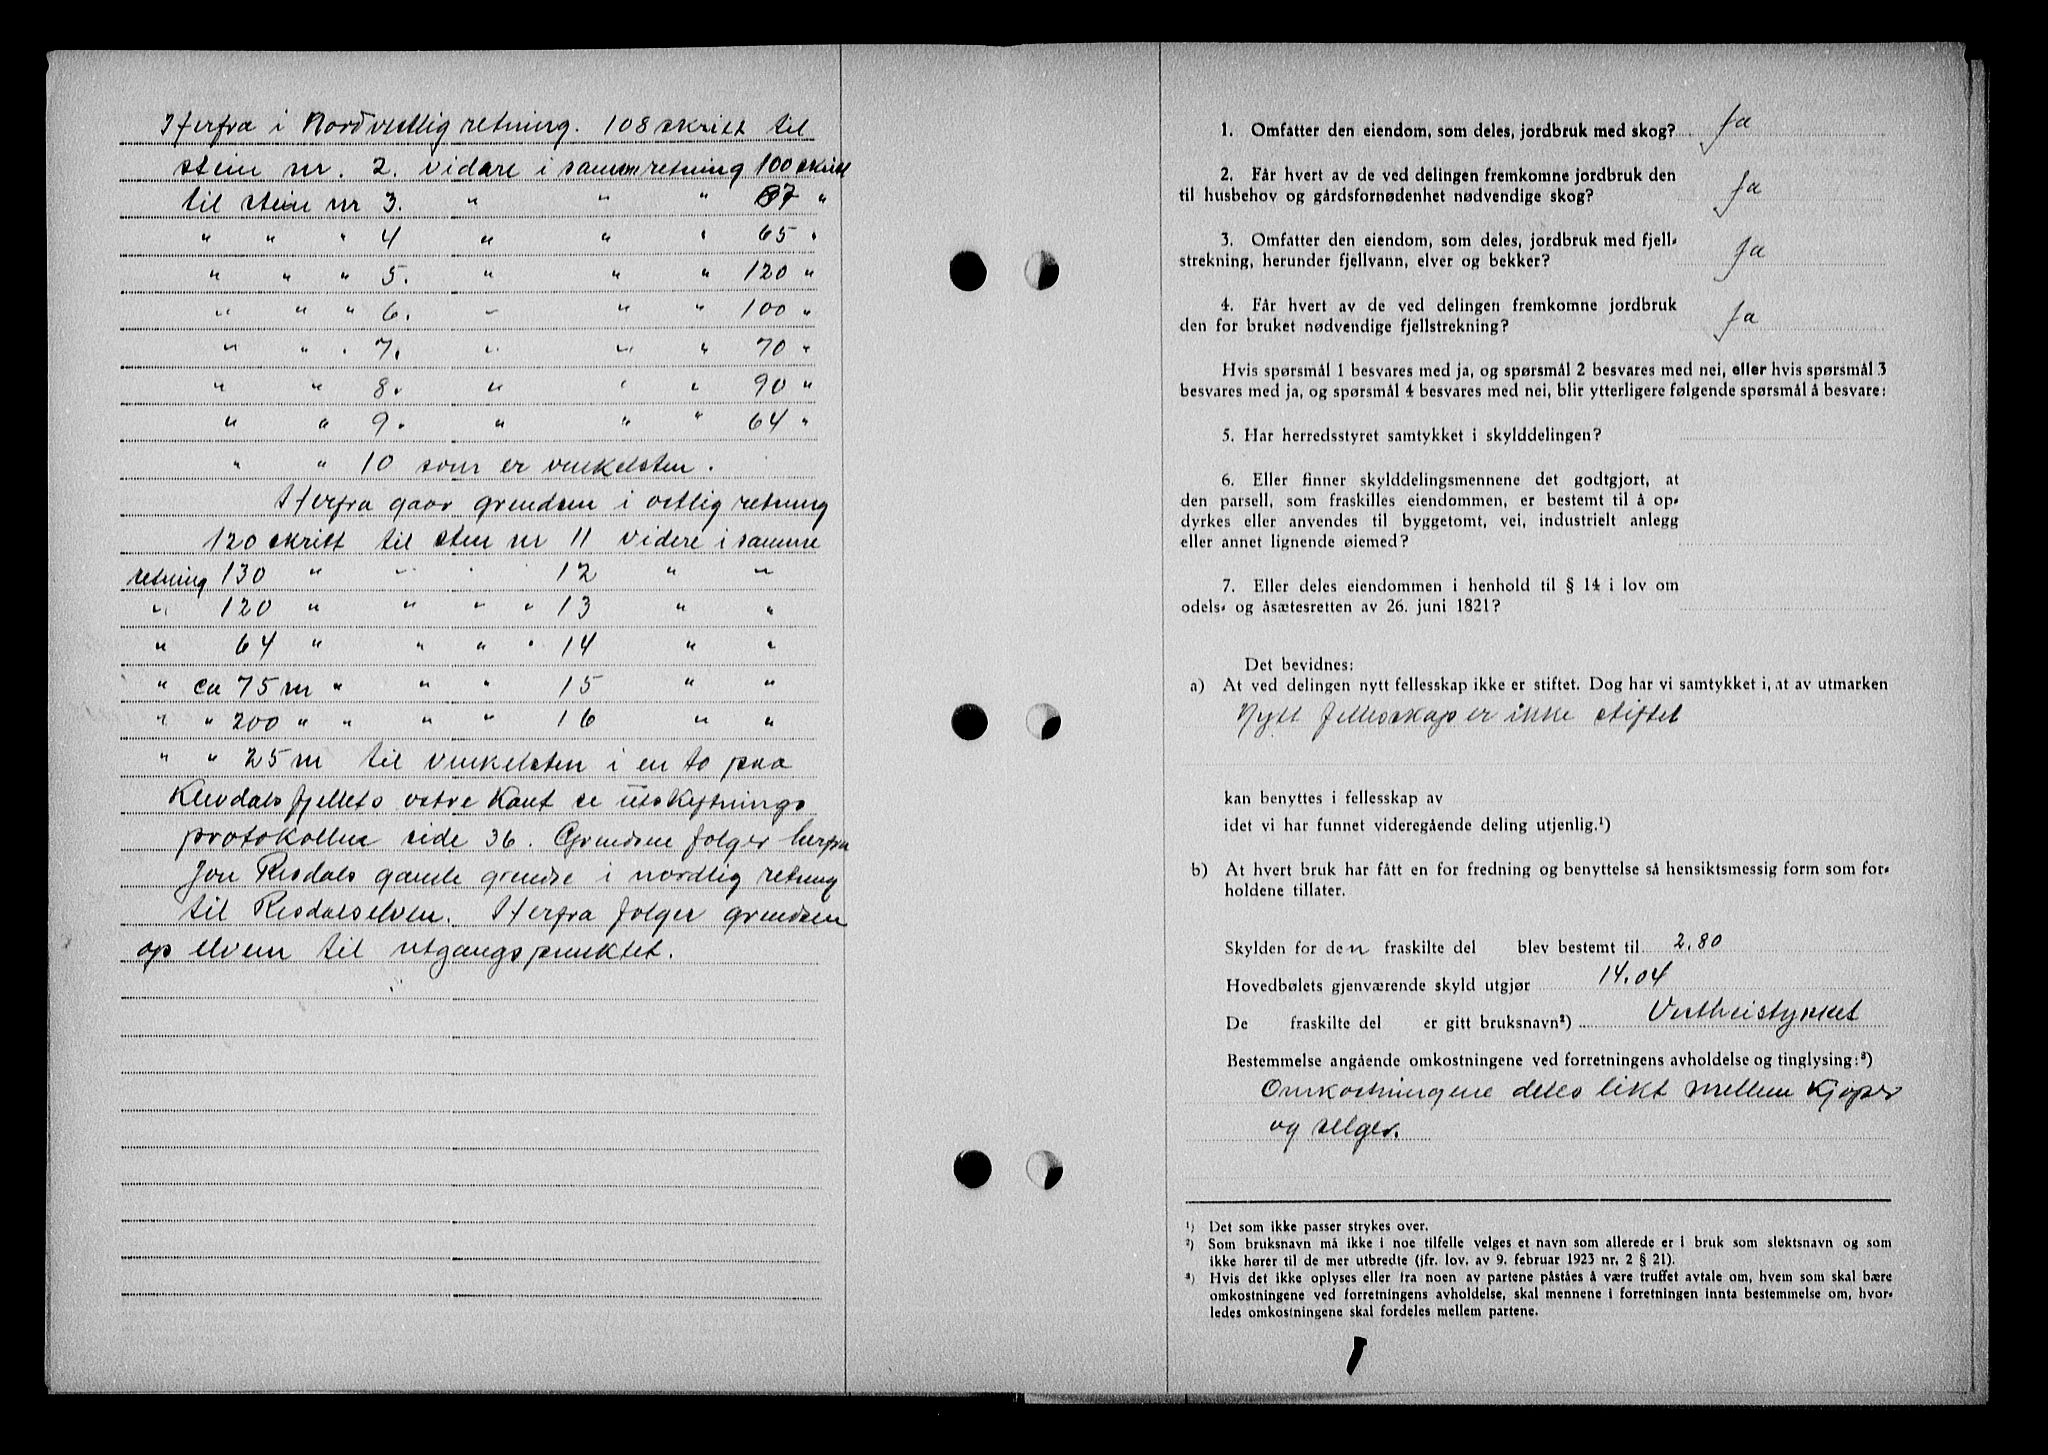 Herfra i Nordvestlig retning. 108 skritt til
stein nr. 2. vidare i samm retning 100 skritt
til stein nr 3. " " " 87 "
" " " 4 " " " 65 "
" " " 5. " " " 120 "
" " " 6. " " " 100 "
" " " 7. " " " 70 "
" " 8. " " " 90 "
" " 9. " " " 64 "
" " 10 som er vinkelsten.
Herfra gaar grendsen i vestlig retning
120 skritt til sten nr 11 videre i samme
retning 130 " " " 12 " "
" 120 " " " " 13 " "
" 64 " " " " 14 " "
" ca 75 m " " " 15 " "
" " 200 " " " " 16 " "
" " 25 m til vinkelsten i en to paa
Klevdalsfjellets vestre Kant se utskiftnings
protokollen side 36. Grendsene følger herfra
Jon Risdals gamle grendse i nordlig retning
til Risdalselven. Herfra følger grendsen
op elven til utgangspunktet.
1. Omfatter den eiendom, som deles, jordbruk med skog? Ja
2. Får hvert av de ved delingen fremkomne jordbruk den
til husbehov og gårdsfornødenhet nødvendige skog? Ja
3. Omfatter den eiendom, som deles, jordbruk med fjell-
strekning, herunder fjellvann, elver og bekker? Ja
4. Får hvert av de ved delingen fremkomne jordbruk
den for bruket nødvendige fjellstrekning? Ja
Hvis spørsmål 1 besvares med ja, og spørsmål 2 besvares med nei, eller hvis spørsmål 3
besvares med ja, og spørsmål 4 besvares med nei, blir ytterligere følgende spørsmål å besvare:
5. Har herredsstyret samtykket i skylddelingen?
6. Eller finner skylddelingsmennene det godtgjort, at
den parsell, som fraskilles eiendommen, er bestemt til å op-
dyrkes eller anvendes til byggetomt, vei, industrielt anlegg
eller annet lignende øiemed?
7. Eller deles eiendommen i henhold til § 14 i lov om
odels- og åsætesretten av 26. juni 1821?
Det bevidnes:
a) At ved delingen nytt fellesskap ikke er stiftet. Dog har vi samtykket i, at av utmarken
Nytt fellesskap er ikke stiftet
kan benyttes i fellesskap av
idet vi har funnet videregående deling utjenlig.¹)
b) At hvert bruk har fått en for fredning og benyttelse så hensiktsmessig form som for-
holdene tillater.
Skylden for den fraskilte del blev bestemt til 2.80
Hovedbølets gjenværende skyld utgjør 14.04
De fraskilte del er gitt bruksnavn²) Vestheistykket
Bestemmelse angående omkostningene ved forretningens avholdelse og tinglysing:³)
Omkostningene deles likt mellem Kjøper
og selger.
¹) Det som ikke passer strykes over.
²) Som bruksnavn må ikke i noe tilfelle velges et navn som allerede er i bruk som slektsnavn og som
ikke hører til de mer utbredte (jfr. lov. av 9. februar 1923 nr. 2 § 21).
³) Hvis det ikke oplyses eller fra noen av partene påståes å være truffet avtale om, hvem som skal bære
omkostningene ved forretningens avholdelse, skal mennene i forretningen innta bestemmelse om, hvor-
ledes omkostningene skal fordeles mellem partene.